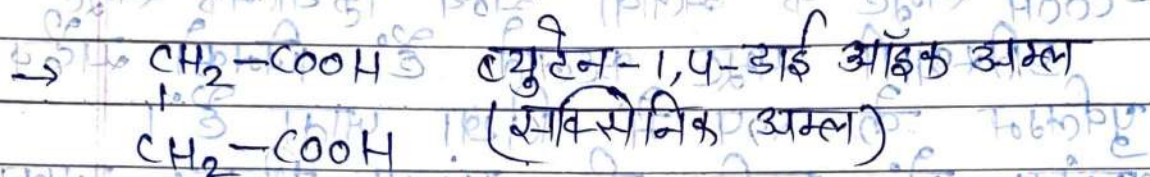 → CH₂-COOH ब्युटेन-1,4-डाई ऑइक अम्ल
|
CH₂-COOH (सक्सिनिक अम्ल)